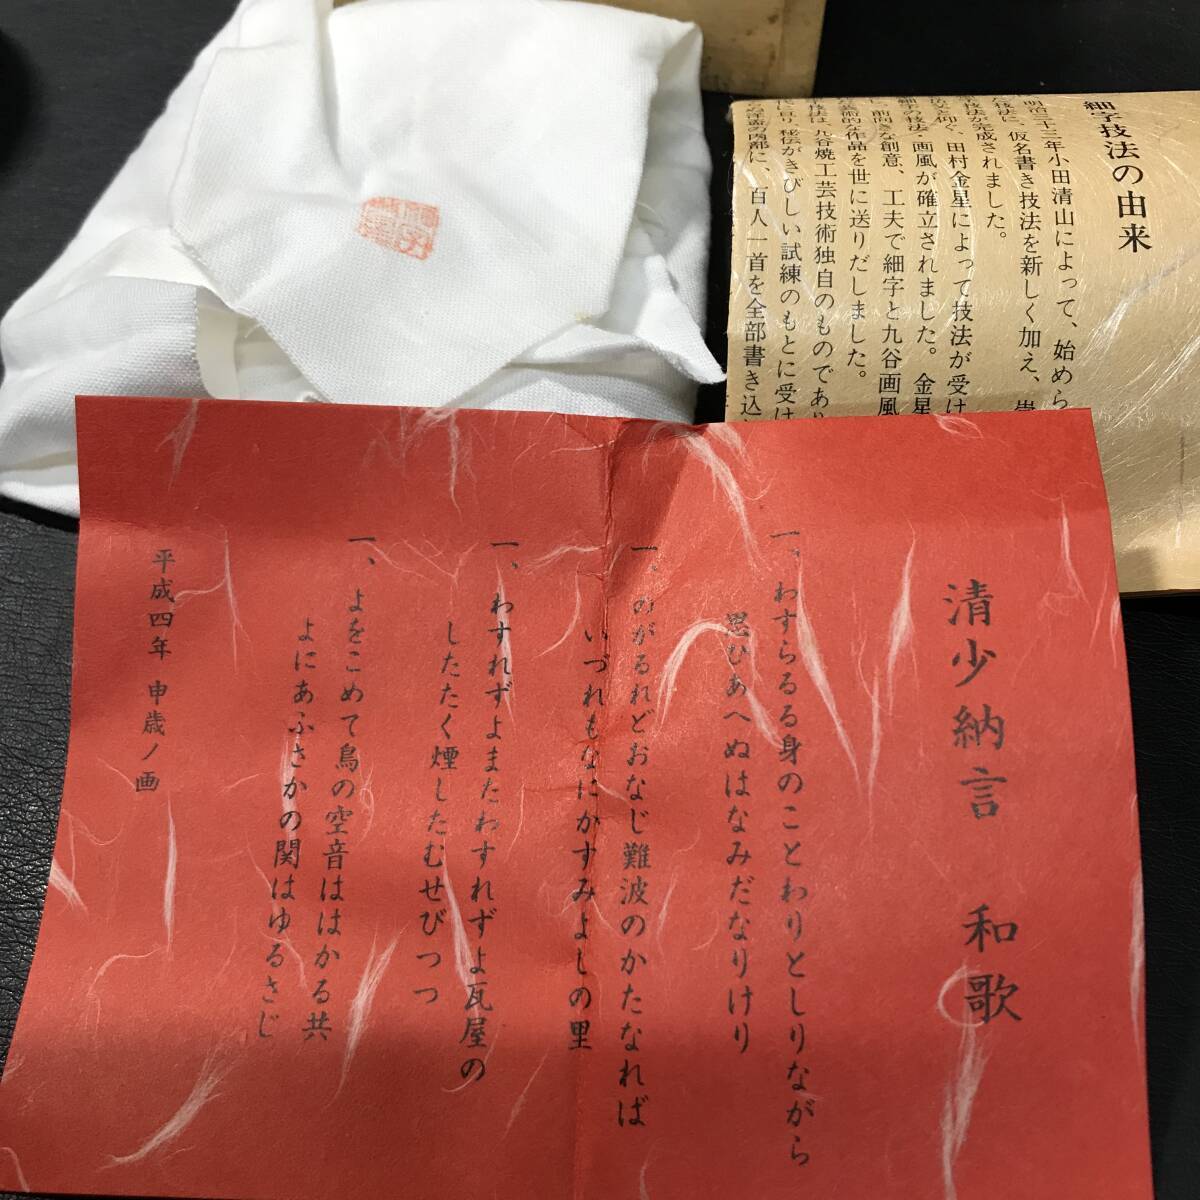 細字技法の由来
明治三十三年小田清山によって、始めら
技法に、仮名書き技法を新しく加え、
技法が完成されました。
と仰ぐ、田村金星によって技法が受け
細字の技法・画風が確立されました。金星
前向きな創意、工夫で細字と九谷画風
芸術的な作品を世に送りだしました。
技法は、九谷焼工芸技術独自のものであり
代に亘り、秘伝がきびしい試練のもとに受け
の内部に、百人一首を全部書き込
清少納言 和歌
一、わすらるる身のことわりとしりながら
思ひあへぬはなみだなりけり
一、のがるれどおなじ難波のかたなれば
いづれもなにかすみよしの里
一、わすれずよまたわすれずよ瓦屋の
したたく煙したむせびつつ
一、よをこめて鳥の空音ははかる共
よにあふさかの関はゆるさじ
平成四年 申歳ノ画